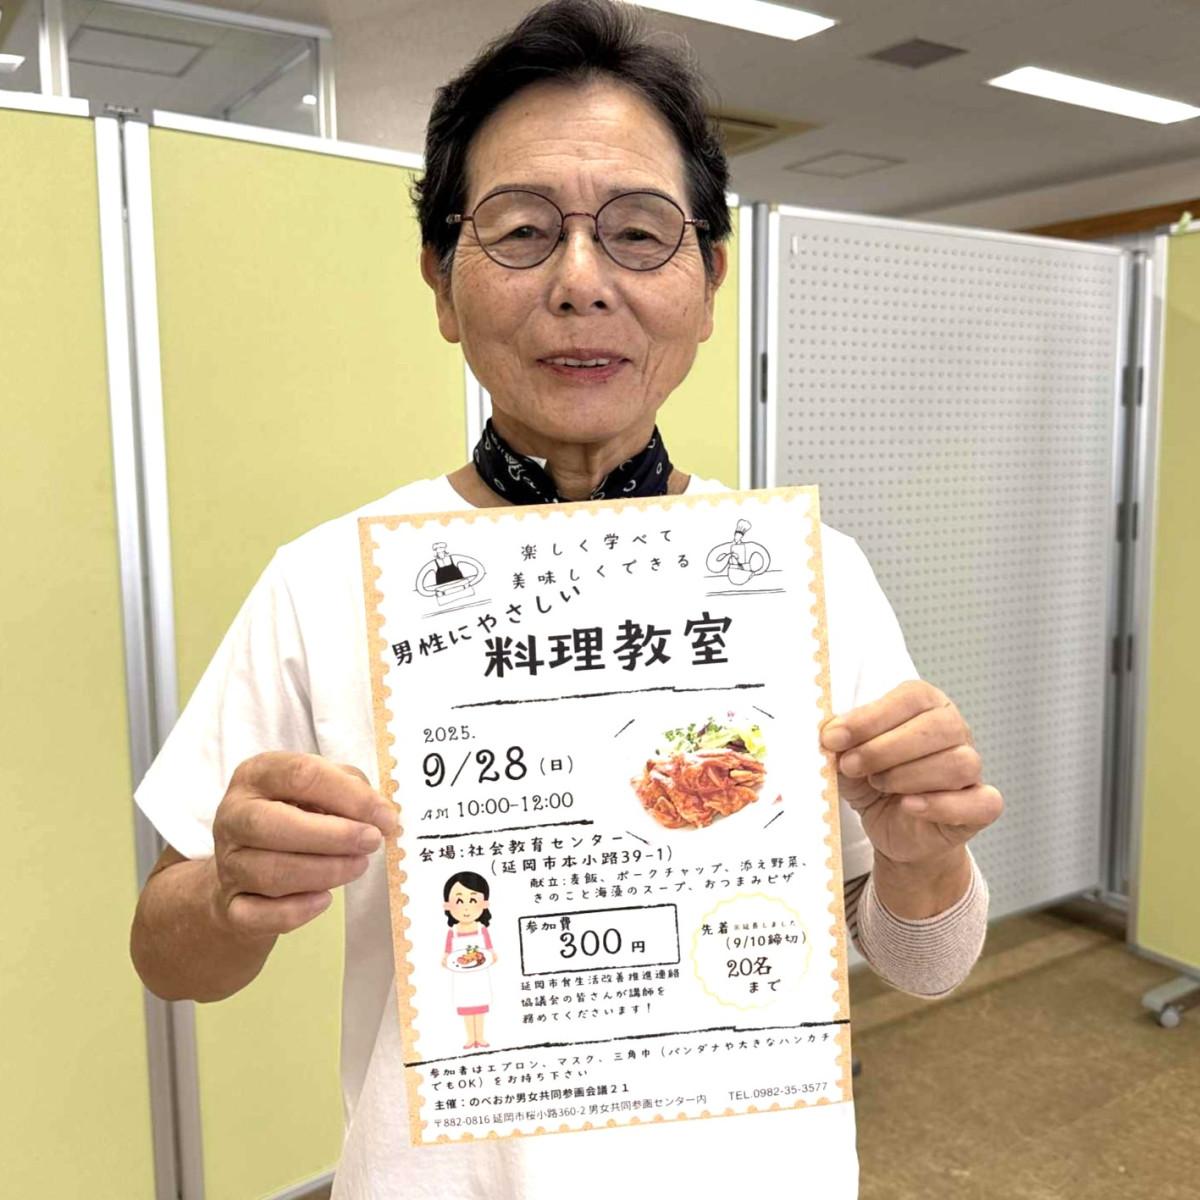 楽しく学べて
美味しくできる
男性にやさしい
料理教室
2025.
9/28（日）
AM 10:00-12:00
会場:社会教育センター
（延岡市本小路39-1）
献立:麦飯、ポークチャップ、添え野菜、
きのこと海藻のスープ、おつまみピザ
参加費
300円
先着※延長しました
（9/10締切）
20名
まで
延岡市食生活改善推進連絡
協議会の皆さんが講師を
務めてくださいます！
参加者はエプロン、マスク、三角巾（バンダナや大きなハンカチ
でもOK）をお持ち下さい
主催：のべおか男女共同参画会議２１
〒882-0816 延岡市桜小路360-2 男女共同参画センター内　TEL.0982-35-3577